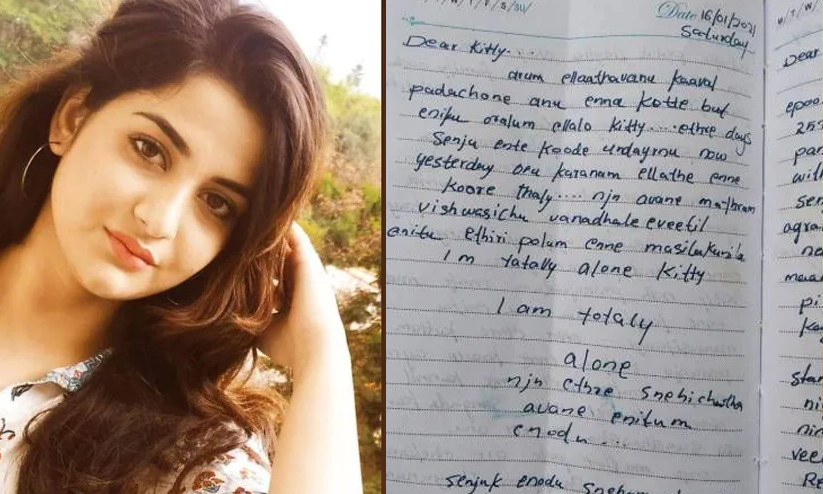 M/T/W/T/F/S/SU/
Date 16/01/2021
Saturday
Dear Kitty...
arum ellaathavanu kaaval
padachone anu enna kotte but
eniku oralum ellalo kitty.... ethre days
Senju ente koode undayrnu now
yesterday oru karanam ellathe enne
koore thaly.... njn avane mathram
vishwasichu vanadhale eveetil
enitu ethiri polum enne masilakunila
I m totally alone kitty
I am totaly
alone
njn ethre snehichatha
avane enitum
enodu ...
senjuk enodu
M/T/W/
Dear
epoo
257
par
will
sen
agra
na
pi
star
ni
nin
veel
Re